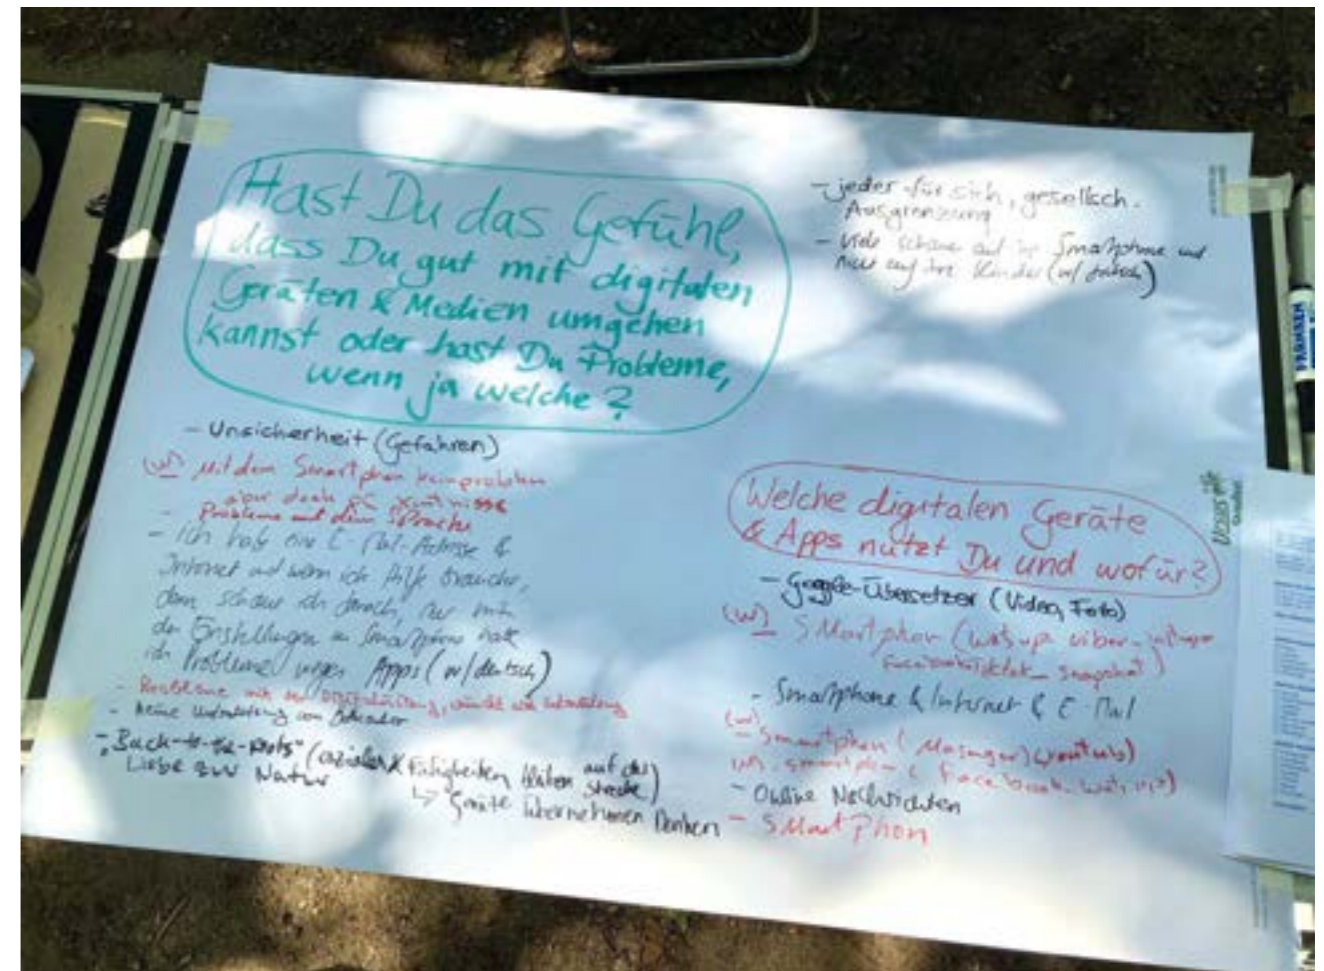 Hast Du das Gefühl,
dass Du gut mit digitalen
Geräten & Medien umgehen
kannst oder hast Du Probleme,
wenn ja welche?
- Unsicherheit (Gefahren)
(w) Mit dem Smartphon kein problem
aber doch PC
- Probleme mit dem Sprache
- Ich habe eine E-Mail-Adresse &
Internet und wenn ich Hilfe brauche,
dann schaue ich danach nur mit
den Einstellungen im Smartphone habe
ich Probleme wegen Apps (w/deutsch)
- Probleme mit der
- keine Unterstützung von
- "Back-to-the-roots" (soziale Fähigkeiten bleiben auf der Strecke)
Liebe zur Natur
↳ Geräte übernehmen Denken
- jeder für sich, gesellsch.
Ausgrenzung
- viele schauen auf ihr Smartphone und
nicht auf ihre Kinder (w/
Welche digitalen Geräte
& Apps nutzt Du und wofür?
- Google-Übersetzer (Video, Foto)
(w) SMartphon (watsup viber
- Smartphone & Internet & E-Mail
(w) - Smartphon (Masinger)
(w) - smartphon (facebook
- Online Nachrichten
- SMartPhon